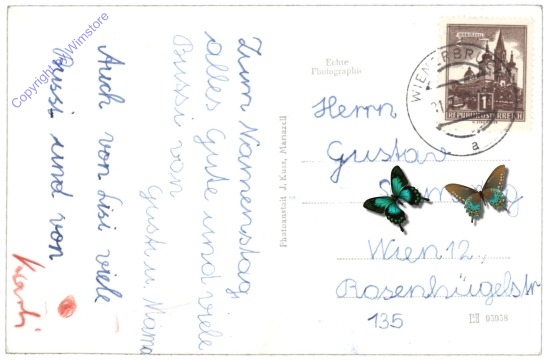 Zum Namenstag
alles Gute und viele
Bussi von
Gusti u. Mama
Auch von Lisi viele
Bussi und von
Karli
Echte
Photographie
Photoanstalt J. Kuss, Mariazell
REPUBLIK ÖSTERREICH
a
Herrn
Gustav
Wien 12,
Rosenhügelstr
135
05938
Copyright by Wimstore